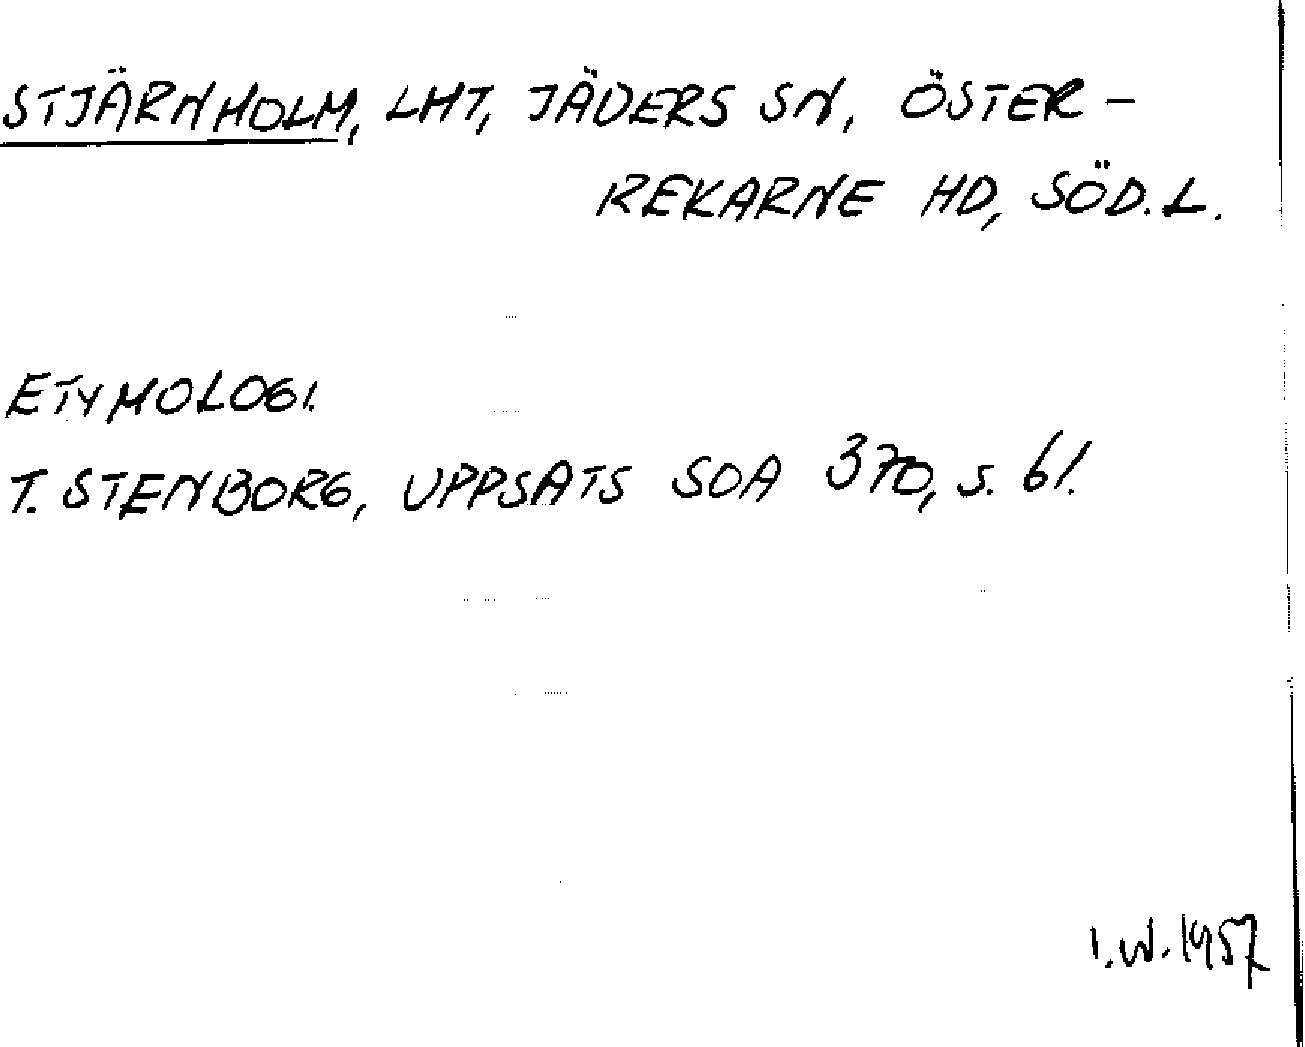 STJÄRNHOLM, LHT, JÄDERS SN, ÖSTER-
REKARNE HD, SÖD.L.
ETYMOLOGI.
T. STENBORG, UPPSATS SOA 370, S. 61.
I.W. 1957